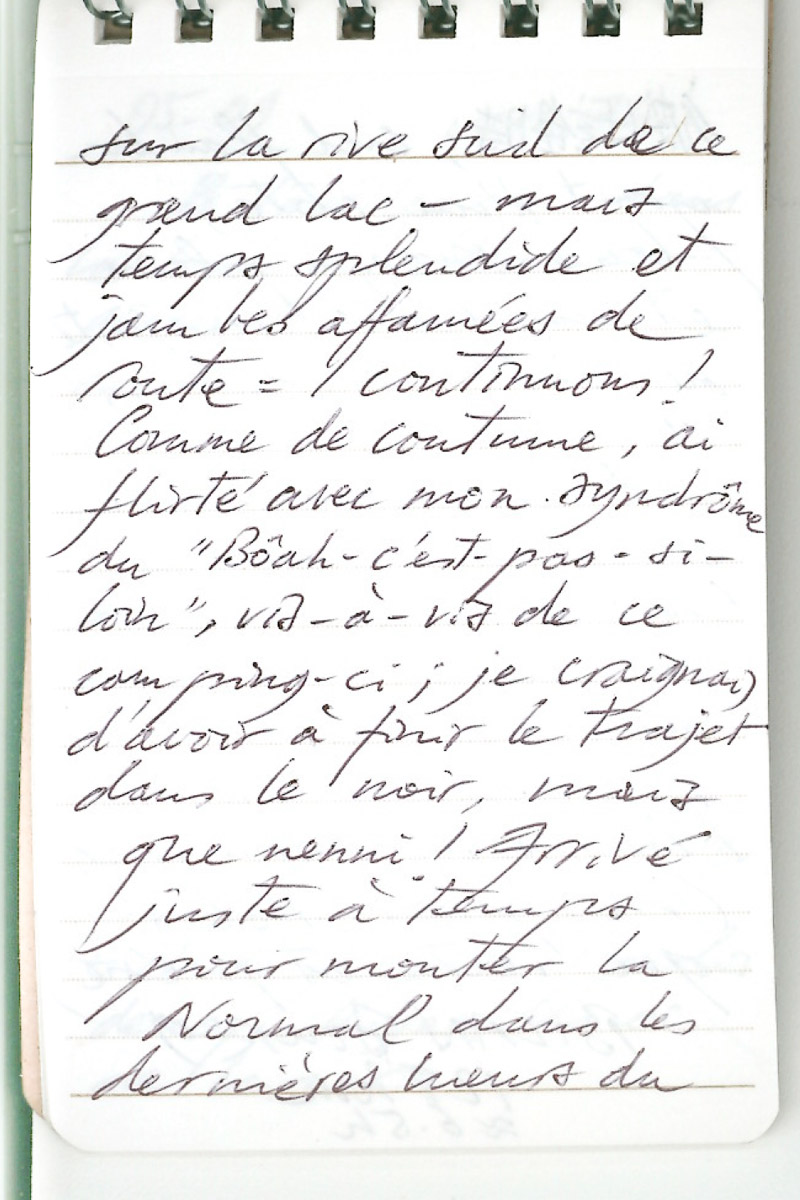 sur la rive sud de ce
grand lac – mais
temps splendide et
jambes affamées de
route = continuons !
Comme de coutume, ai
flirté avec mon syndrôme
du "Bôah-c'est-pas-si-
loin", vis-à-vis de ce
camping-ci ; je craignais
d'avoir à finir le trajet
dans le noir, mais
que nenni ! Arrivé
juste à temps
pour monter la
Normal dans les
dernières lueurs du